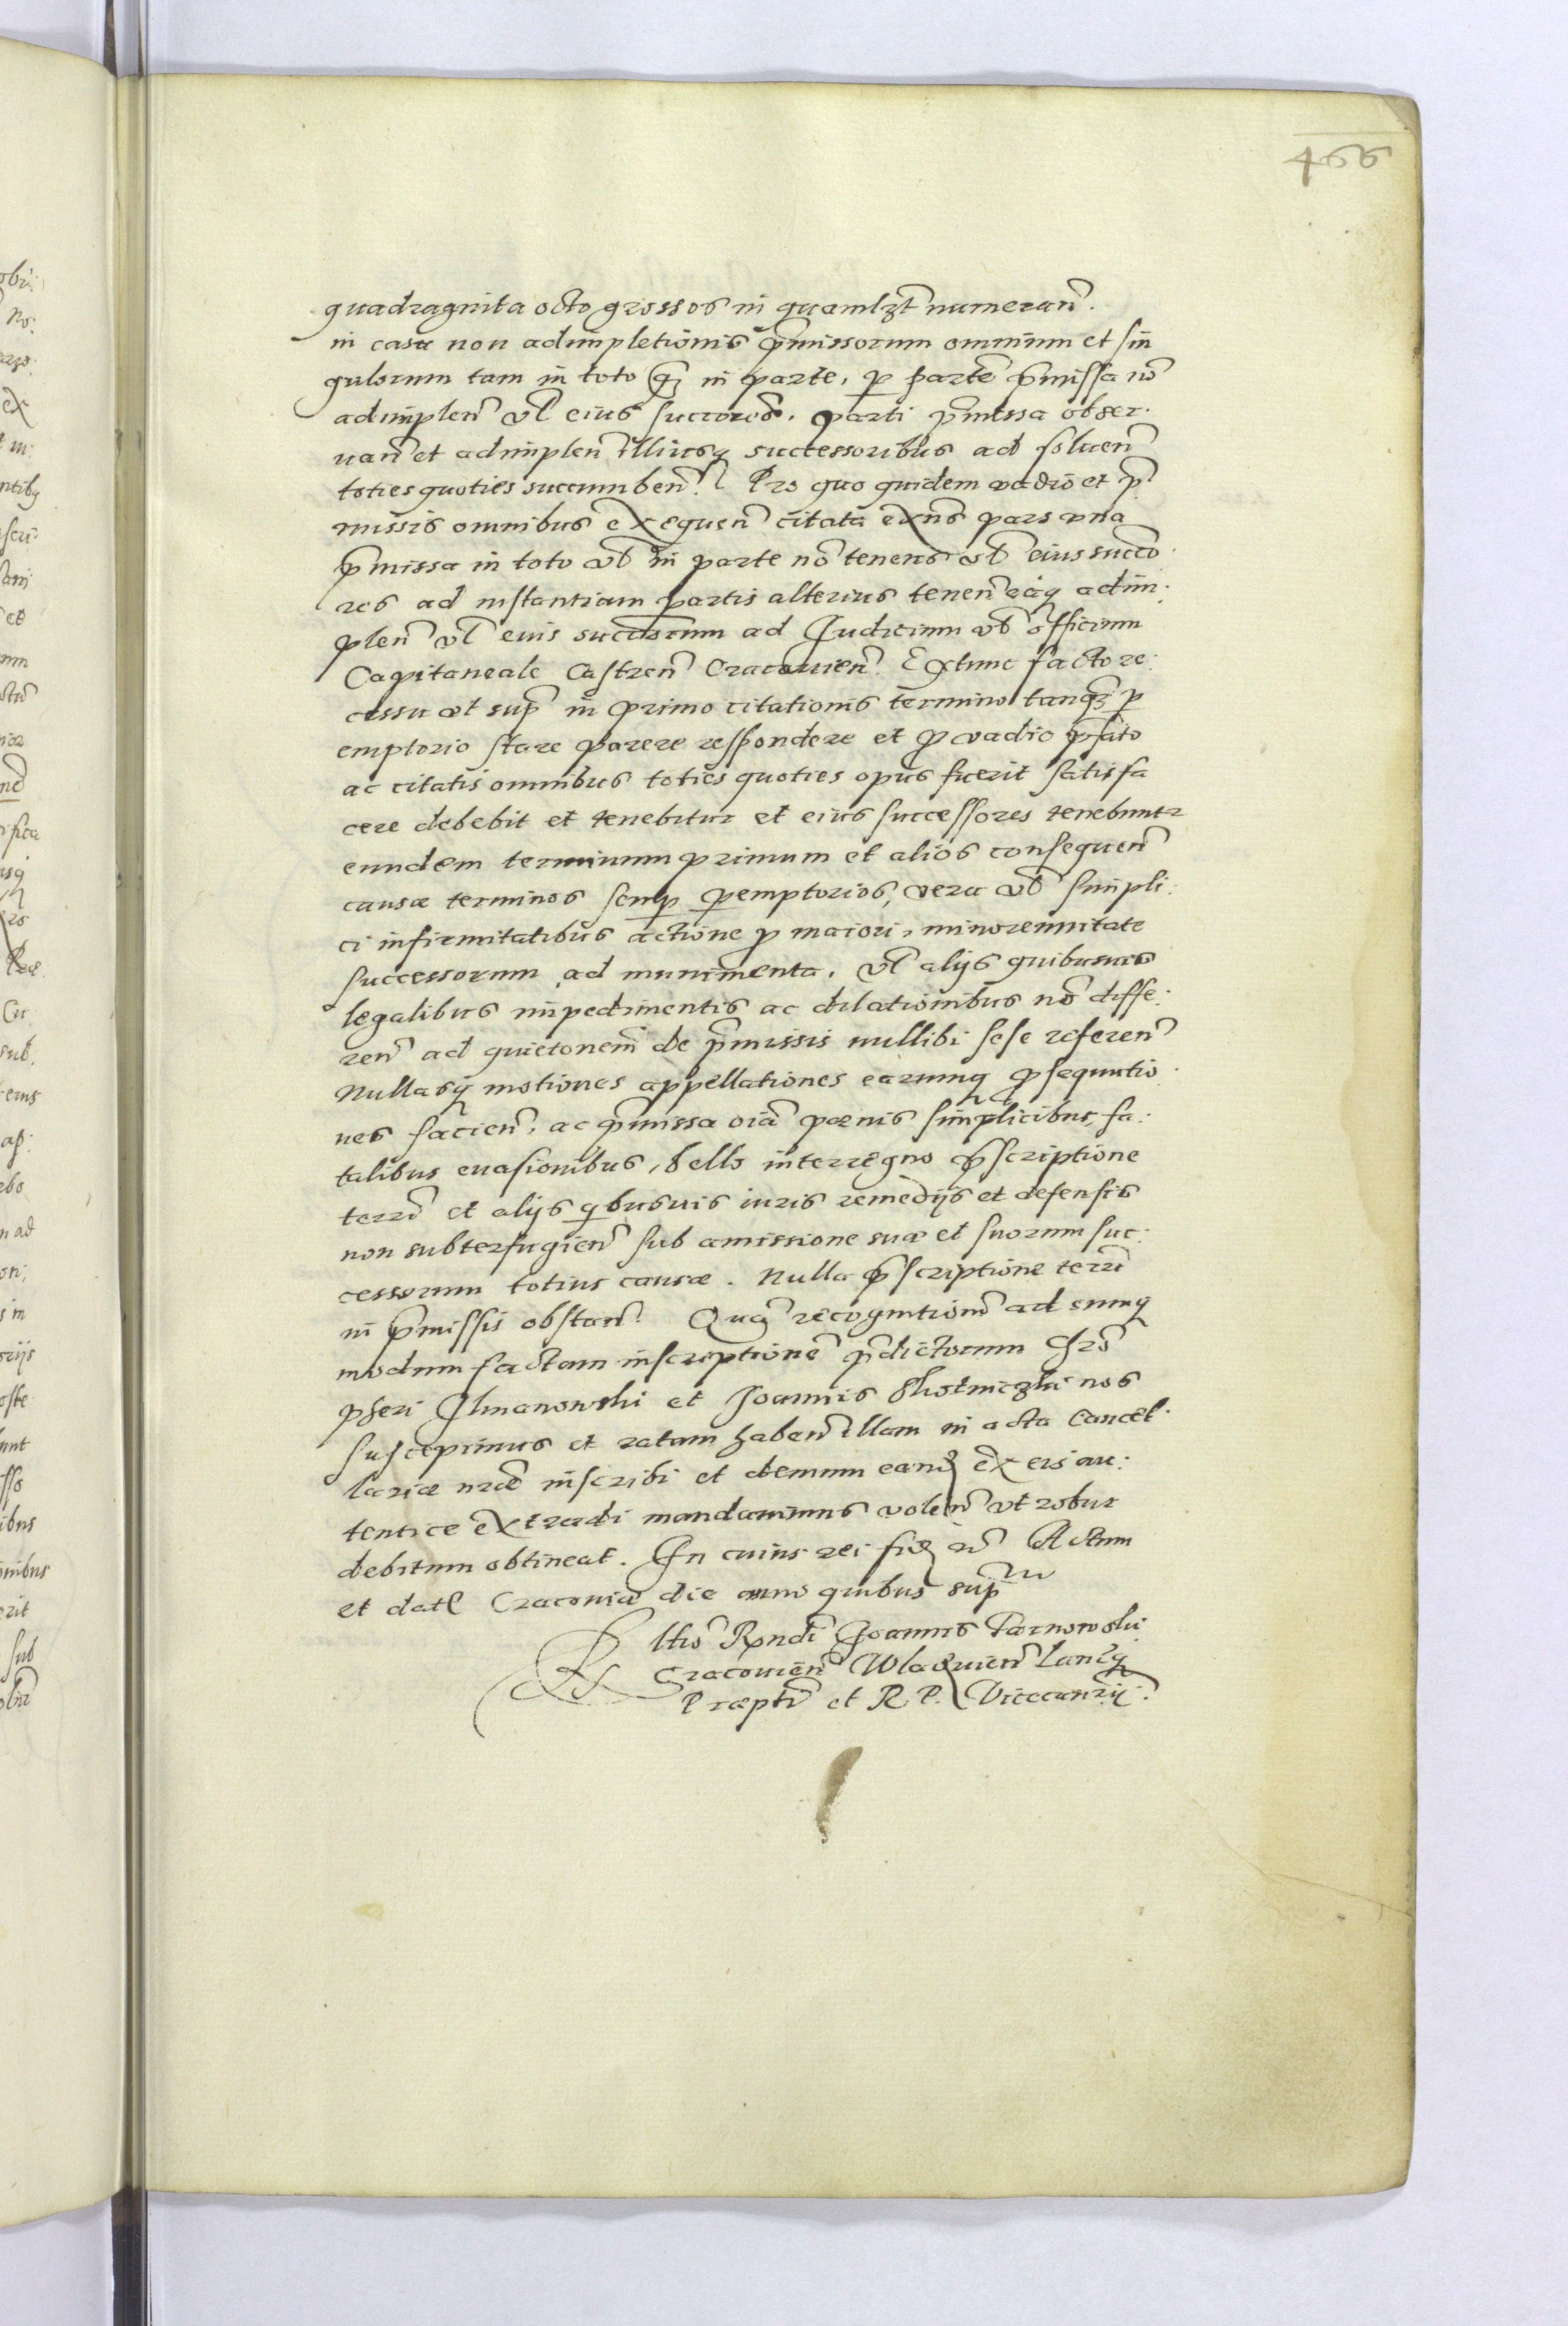 466
quadraginta octo grossos in quamlzt numeran.
in casu non adimpletionis pmissorum omnium et sin
gulorum tam in toto q in parte, p parte pmissa no
adimplen vl eius succores, parti pmissa obser.
uan et adimplen illiusq successoribus ad soluen
toties quoties succumben. Pro quo quidem vadio et p
missis omnibus exequen citata exns pars vna
pmissa in toto vl in parte no tenens vl eius succo
res ad instantiam partis alterius tenen eaq adim:
plen vl eius succorum ad Judicium vl officium
Capitaneale Castren Cracouien. Extunc facto re:
cessu vt sup in primo citationis termino tanq p
emptorio stare parere respondere et p vadio pfato
ac citatis omnibus toties quoties opus fuerit satisfa
cere debebit et tenebitur et eius successores tenebuntr
eundem terminum primum et alios consequen
causæ terminos semp pemptorios, vera vl simpli:
ci infirmitatibus actione p maiori, minorennitate
successorum, ad munimenta, vl alijs quibusuis
legalibus impedimentis ac dilationibus no diffe:
ren ad quietonem de pmissis nullibi sese referen
Nullasq motiones appellationes earumq psequutio
nes facien, ac pmissa oia pœnis simplicibus, fa:
talibus euasionibus, bello interregno pscriptione
terri et alijs qbusuis iuris remedijs et defensis
non subterfugien sub amissione suæ et suorum suc:
cessorum totius causæ. Nulla pscriptione terri
in pmissis obstan. Qua recognitionem ad eumq
modum factam inscriptione pdictorum Chro
pheri Ilmanowski et Joannis nos
suscepimus et ratam haben illam in acta Cancel
lariæ nræ inscribi et demum eand ex eis au:
tentice extradi mandauimus volen vt robur
debitum obtineat. In cuius rei fid rc Actum
et dat Cracoviæ die anno quibus supra
Rltio Rendi Joannis Tarnowski
Cracouien Wladuien Lanciq
Præpti et R. P. Vicecanrij.